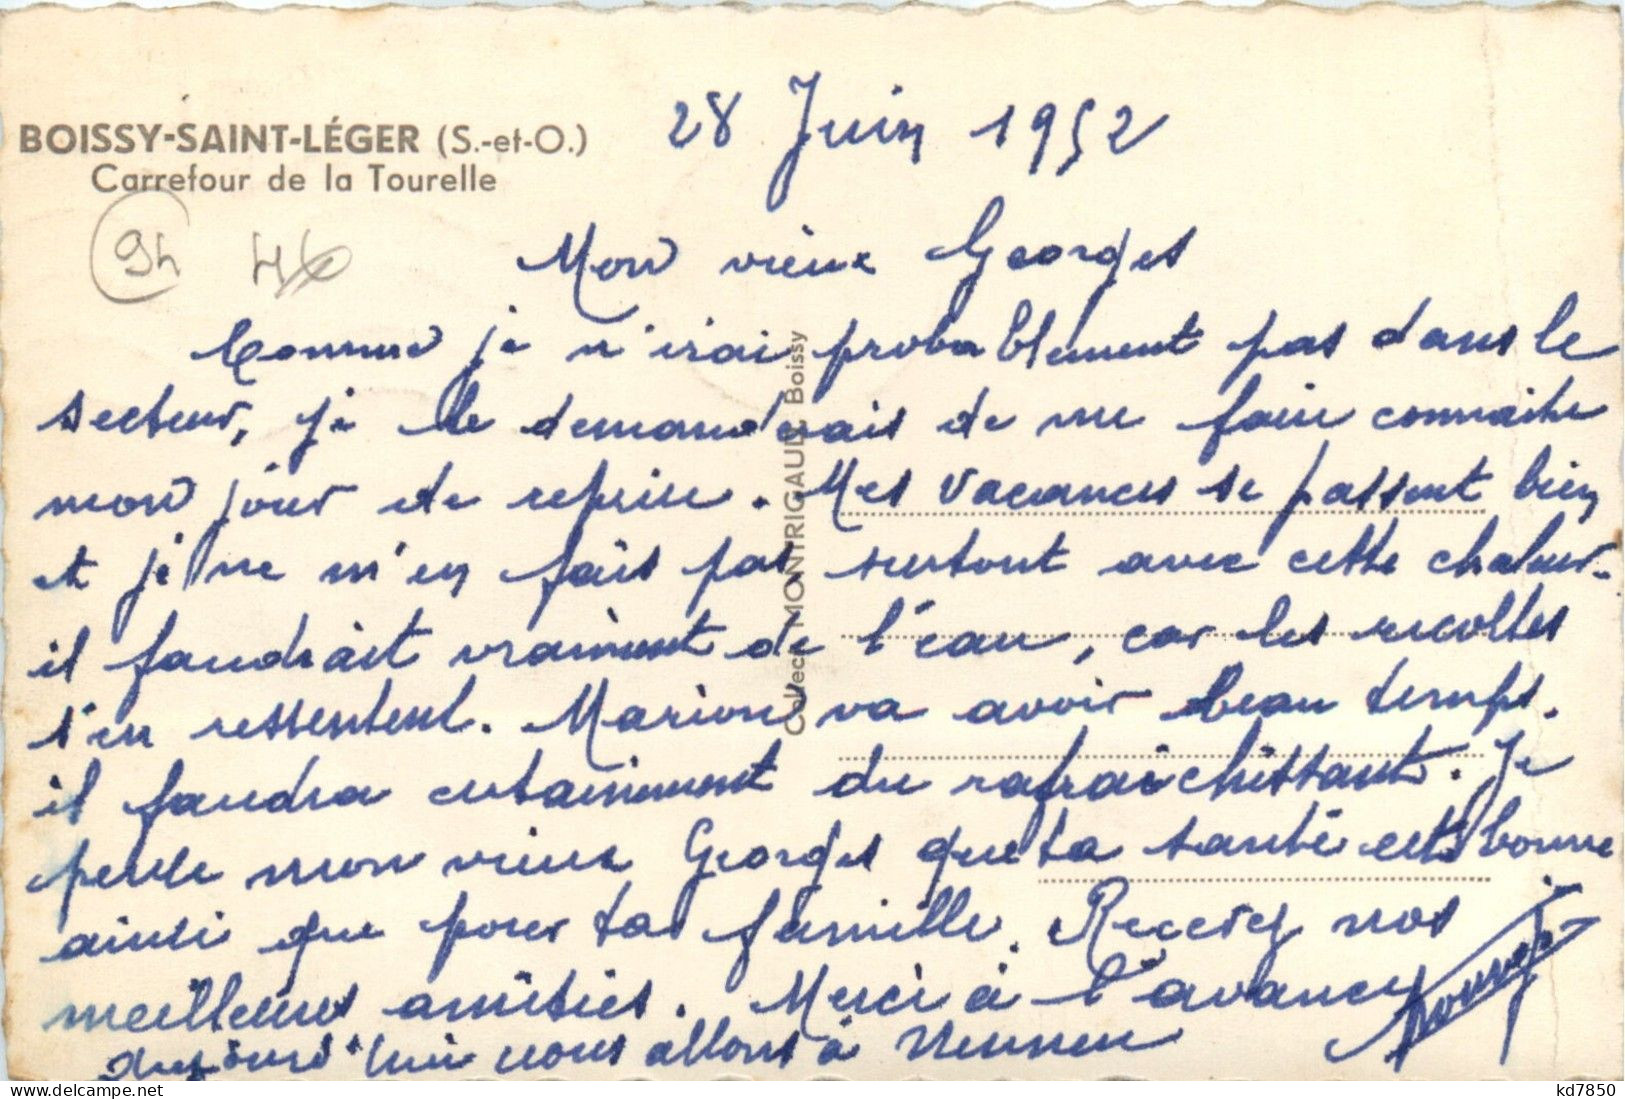 BOISSY-SAINT-LÉGER (S.-et-O.)
Carrefour de la Tourelle
28 Juin 1952
94 46
Mon vieux Georges
Comme je n'irai probablement pas dans le
secteur, je te demanderais de me faire connaitre
mon jour de reprise. Mes vacances se passent bien
et je ne m'en fais pas surtout avec cette chaleur.
il faudrait vraiment de l'eau, car les recoltes
s'en ressentent. Marion va avoir beau temps.
il faudra certainement du rafraîchissant. Je
pense mon vieux Georges que ta santé est bonne
ainsi que pour ta famille. Recevez nos
meilleures amitiés. Merci à l'avance
aujourd'hui nous allons à
Collec. MONTRIGAUD, Boissy
kd7850